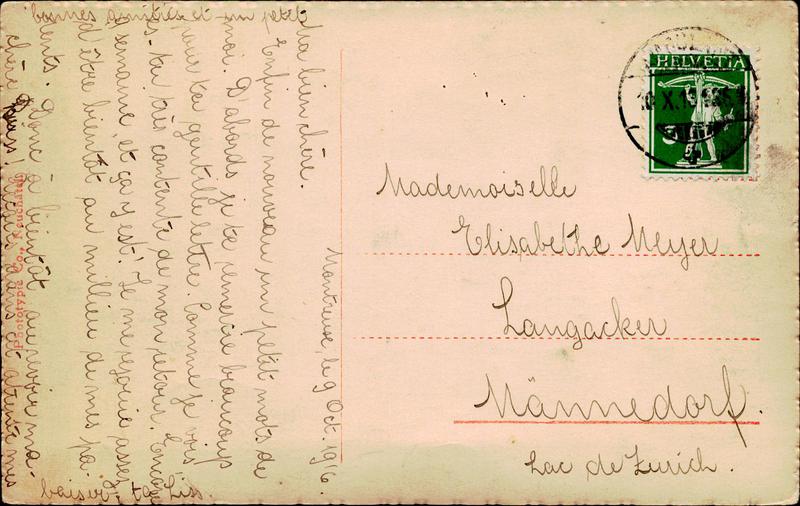 Montreux, le 9 Oct. 1916.
Ma bien chère.
Enfin de nouveau un petit mots de
moi. D'abords je te remercie beaucoup
pour ta gentille lettre. Comme je vois
es-tu très contente de mon retour. Encore
1 semaine, et ça y est! Je me rejouie assez
d'être bientôt au millieu de mes pa-
rents. Donc à bientôt au revoir ma
chère et mes
bonnes amitiés et un petit
baiser, ta Liss.
Phototypie Co., Neuchâtel
HELVETIA
Mademoiselle
Elisabethe Meyer
Langacker
Männedorf.
Lac de Zurich.